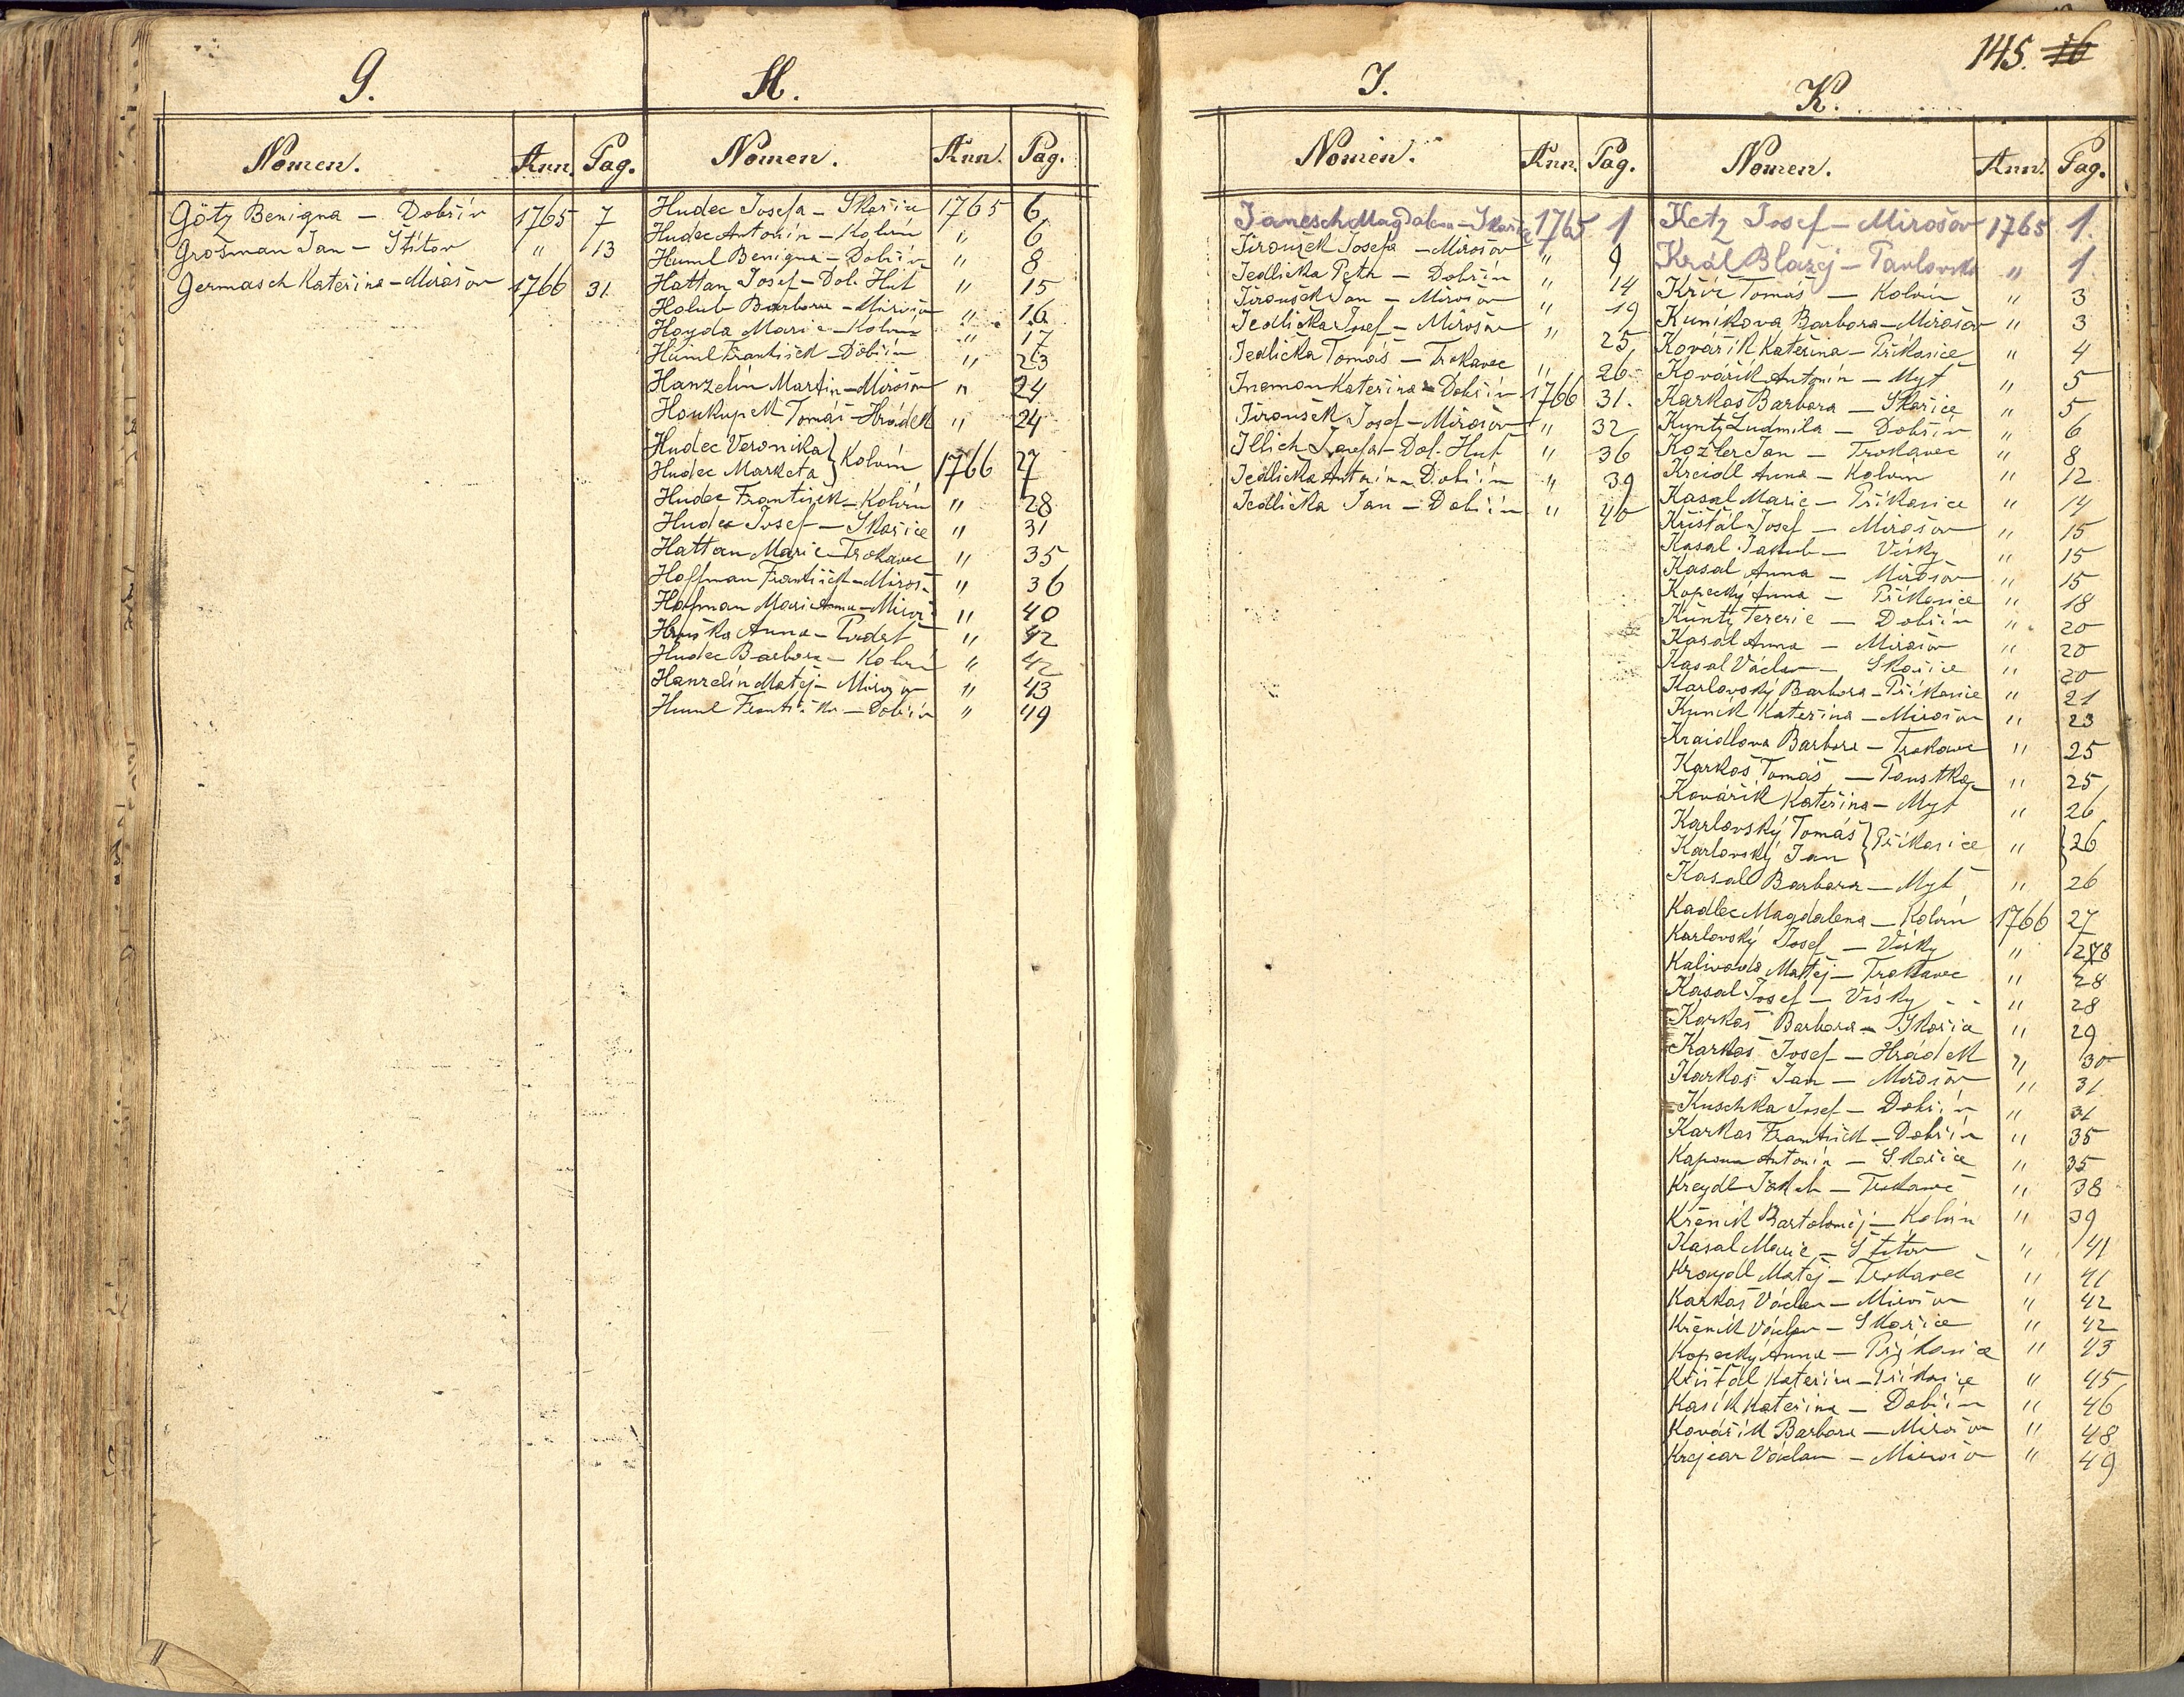 145. 16
G.
Nomen. Ann. Pag.
Götz Benigna — Dobřív 1765 7
Grošman Jan — Štítov " 13
Germasch Kateřina — Mirošov 1766 31
H.
Nomen. Ann. Pag.
Hudec Josefa — Skořice 1765 6
Hudec Antonín — Kolvín " 6
Huml Benigna — Dobřív " 8
Hattan Josef — Dol. Huť " 15
Holub Barbora — Mirošov " 16
Hayda Marie — Kolvín " 17
Huml František — Dobřív " 23
Hanzelín Martin — Mirošov " 24
Houkupek Tomáš — Hrádek " 24
Hudec Veronika } Kolvín 1766 27
Hudec Marketa
Hudec František — Kolvín " 28
Hudec Josef — Skořice " 31
Hattan Marie — Trokavec " 35
Hoffman František — Miroš. " 36
Hofman Marie Anna — Miroš. " 40
Hruška Anna — " 42
Hudec Barbora — Kolvín " 42
Hanzelín Matěj — Mirošov " 43
Huml Františka — Dobřív " 49
J.
Nomen. Ann. Pag.
Janesch Magdalena — Skořice 1765 1
Jiroušek Josefa — Mirošov " 9
Jedlička Petr — Dobřív " 14
Jiroušek Jan — Mirošov " 19
Jedlička Josef — Mirošov " 25
Jedlička Tomáš — Trokavec " 26
Inemon Kateřina — Dobřív 1766 31.
Jiroušek Josef — Mirošov " 32
Illich Josefa — Dol. Huť " 36
Jedlička Antonín — Dobřív " 39
Jedlička Jan — Dobřív " 40
K.
Nomen. Ann. Pag.
Ketz Josef — Mirošov 1765 1.
Král Blažej — Pavlovsko " 1
Kříž Tomáš — Kolvín " 3
Kunikova Barbora — Mirošov " 3
Kovářík Kateřina — Příkosice " 4
Kovářík Antonín — Myť " 5
Karkoš Barbora — Skořice " 5
Kuntz Ludmila — Dobřív " 6
Kozler Jan — Trokavec " 8
Kreidl Anna — Kolvín " 12
Kasal Marie — Příkosice " 14
Křišťál Josef — Mirošov " 15
Kasal Jakub — Vísky " 15
Kasal Anna — Mirošov " 15
Kopecký Anna — Příkosice " 18
Kuntz Terezie — Dobřív " 20
Kasal Anna — Mirošov " 20
Kasal Václav — Skořice " 20
Karlovský Barbora — Příkosice " 21
Kunik Kateřina — Mirošov " 23
Kraidlova Barbora — Trokavec " 25
Karkoš Tomáš — Poustka " 25
Kovářík Kateřina — Myť " 26
Karlovský Tomáš } Příkosice " } 26
Karlovský Jan
Kasal Barbora — Myť " 26
Kadlec Magdalena — Kolvín 1766 27
Karlovský Josef — Vísky " 28
Kalivoda Matěj — Trokavec " 28
Kasal Josef — Vísky " 28
Karkoš Barbora — Skořice " 29
Karkoš Josef — Hrádek " 30
Karkoš Jan — Mirošov " 31
Kuschka Josef — Dobřív " 31
Karkoš František — Dobřív " 35
Kapoun Antonín — Skořice " 35
Kreydl Jakub — Trokavec " 38
Křeník Bartoloměj — Kolvín " 39
Kasal Marie — Štítov " 41
Kraydl Matěj — Trokavec " 41
Karkoš Václav — Mirošov " 42
Křeník Václav — Skořice " 42
Kopecký Anna — Příkosice " 43
Křišťál Kateřina — Příkosice " 45
Kasík Kateřina — Dobřív " 46
Kovářík Barbora — Mirošov " 48
Krejcar Václav — Mirošov " 49